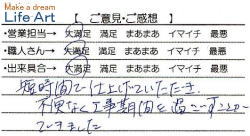 Make a dream
Life Art 【ご意見・ご感想】
・営業担当→ 大満足 満足 まあまあ イマイチ 最悪
・職人さん→ 大満足 満足 まあまあ イマイチ 最悪
・出来具合→ 大満足 満足 まあまあ イマイチ 最悪
短時間で仕上げていただき、
不便な工事期間を過ごすことなく
できました